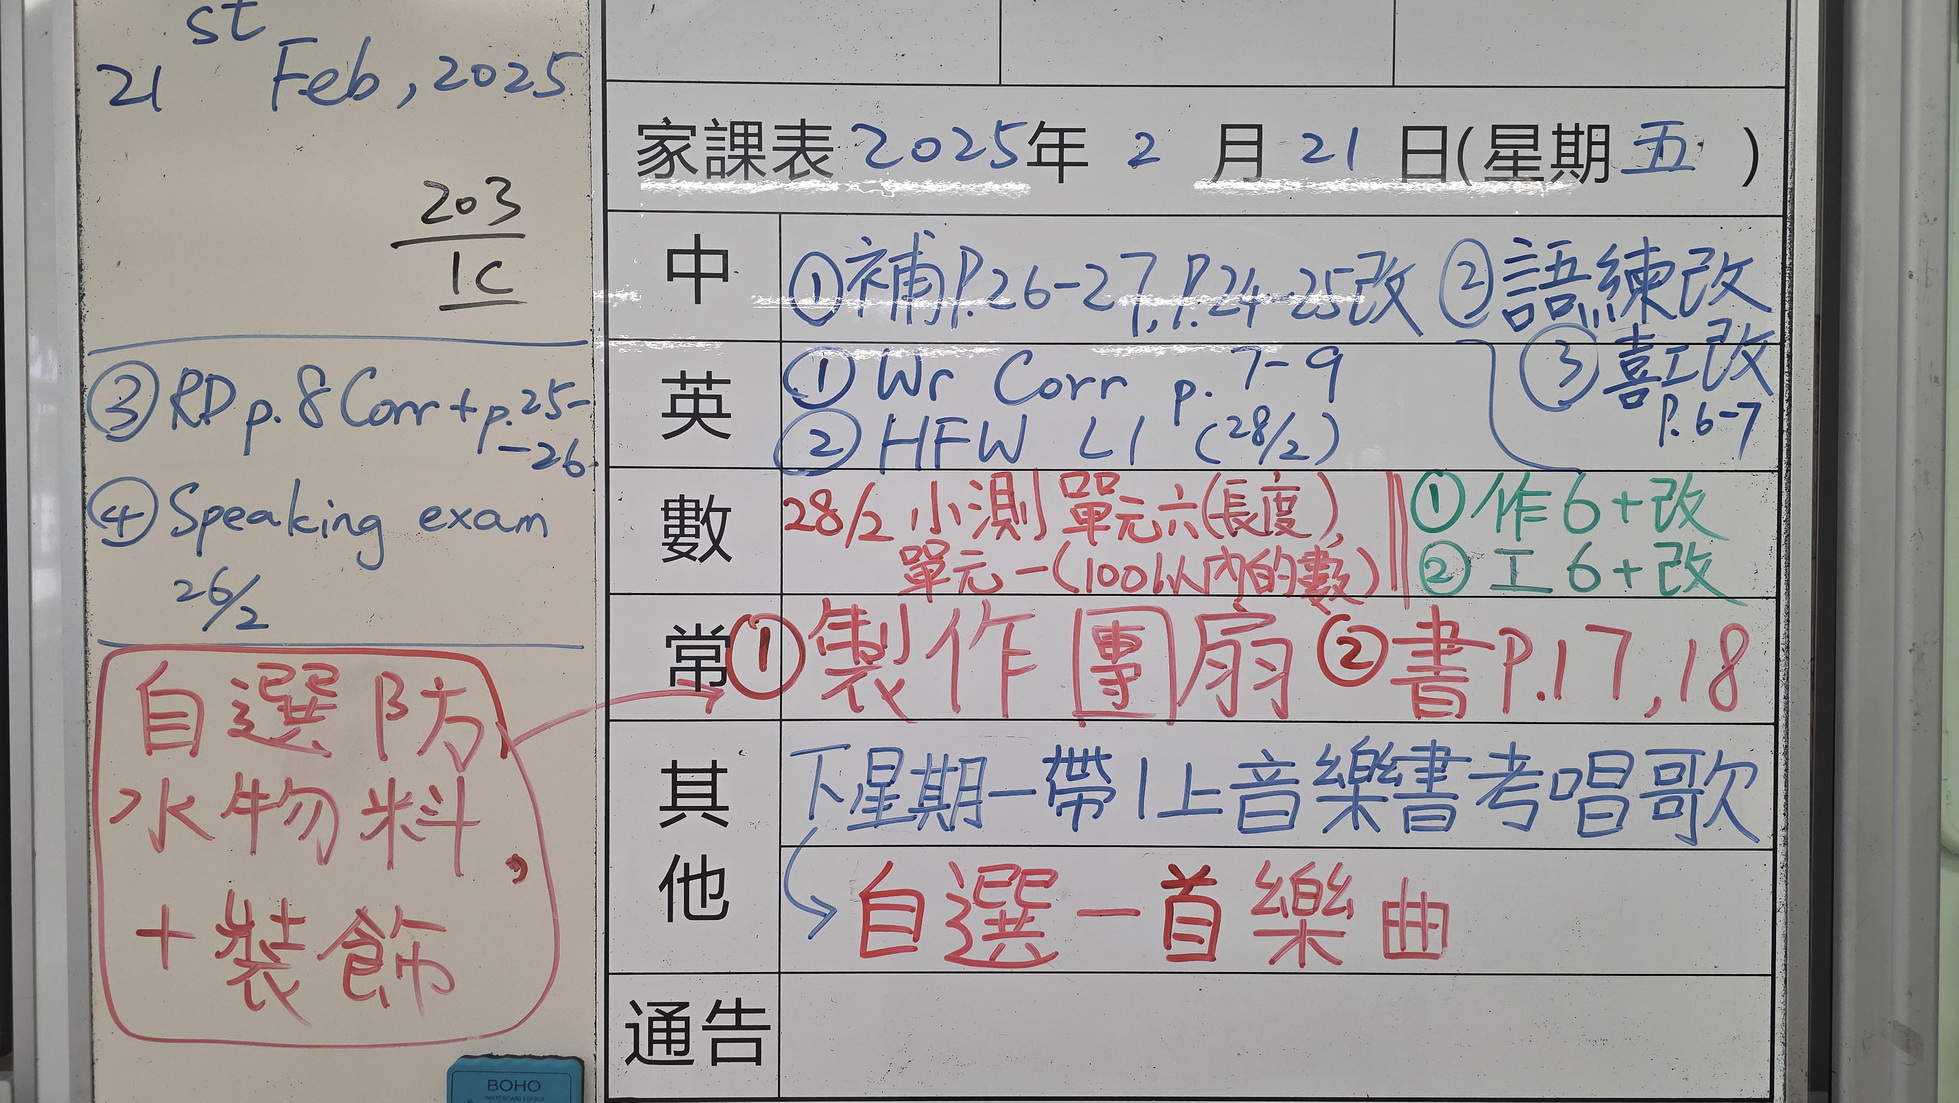 21st Feb, 2025
203
1C
③ RD p. 8 Corr + p. 25-
-26
④ Speaking exam
26/2
自選防
水物料,
+裝飾
BOHO
家課表 2025年 2 月 21 日(星期 五 )
中 ①補P.26-27, P.24-25改 ②語練改
③喜工改
P.6-7
英 ① Wr Corr p. 7-9
② HFW L1 (28/2)
數 28/2 小測 單元六(長度),
單元一(100以內的數)
①作6+改
②工6+改
常 ①製作團扇 ②書P.17,18
其他 下星期一帶1上音樂書考唱歌
自選一首樂曲
通告